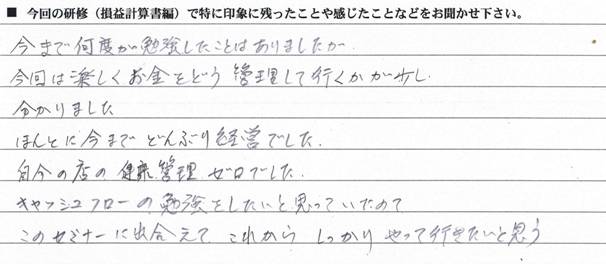 ■ 今回の研修（損益計算書編）で特に印象に残ったことや感じたことなどをお聞かせ下さい。
今まで何度か勉強したことはありましたが
今回は楽しくお金をどう管理して行くかが少し
分かりました
ほんとに今までどんぶり経営でした。
自分の店の健康管理ゼロでした。
キャッシュフローの勉強をしたいと思っていたので
このセミナーに出合えて これから しっかり やって行きたいと思う